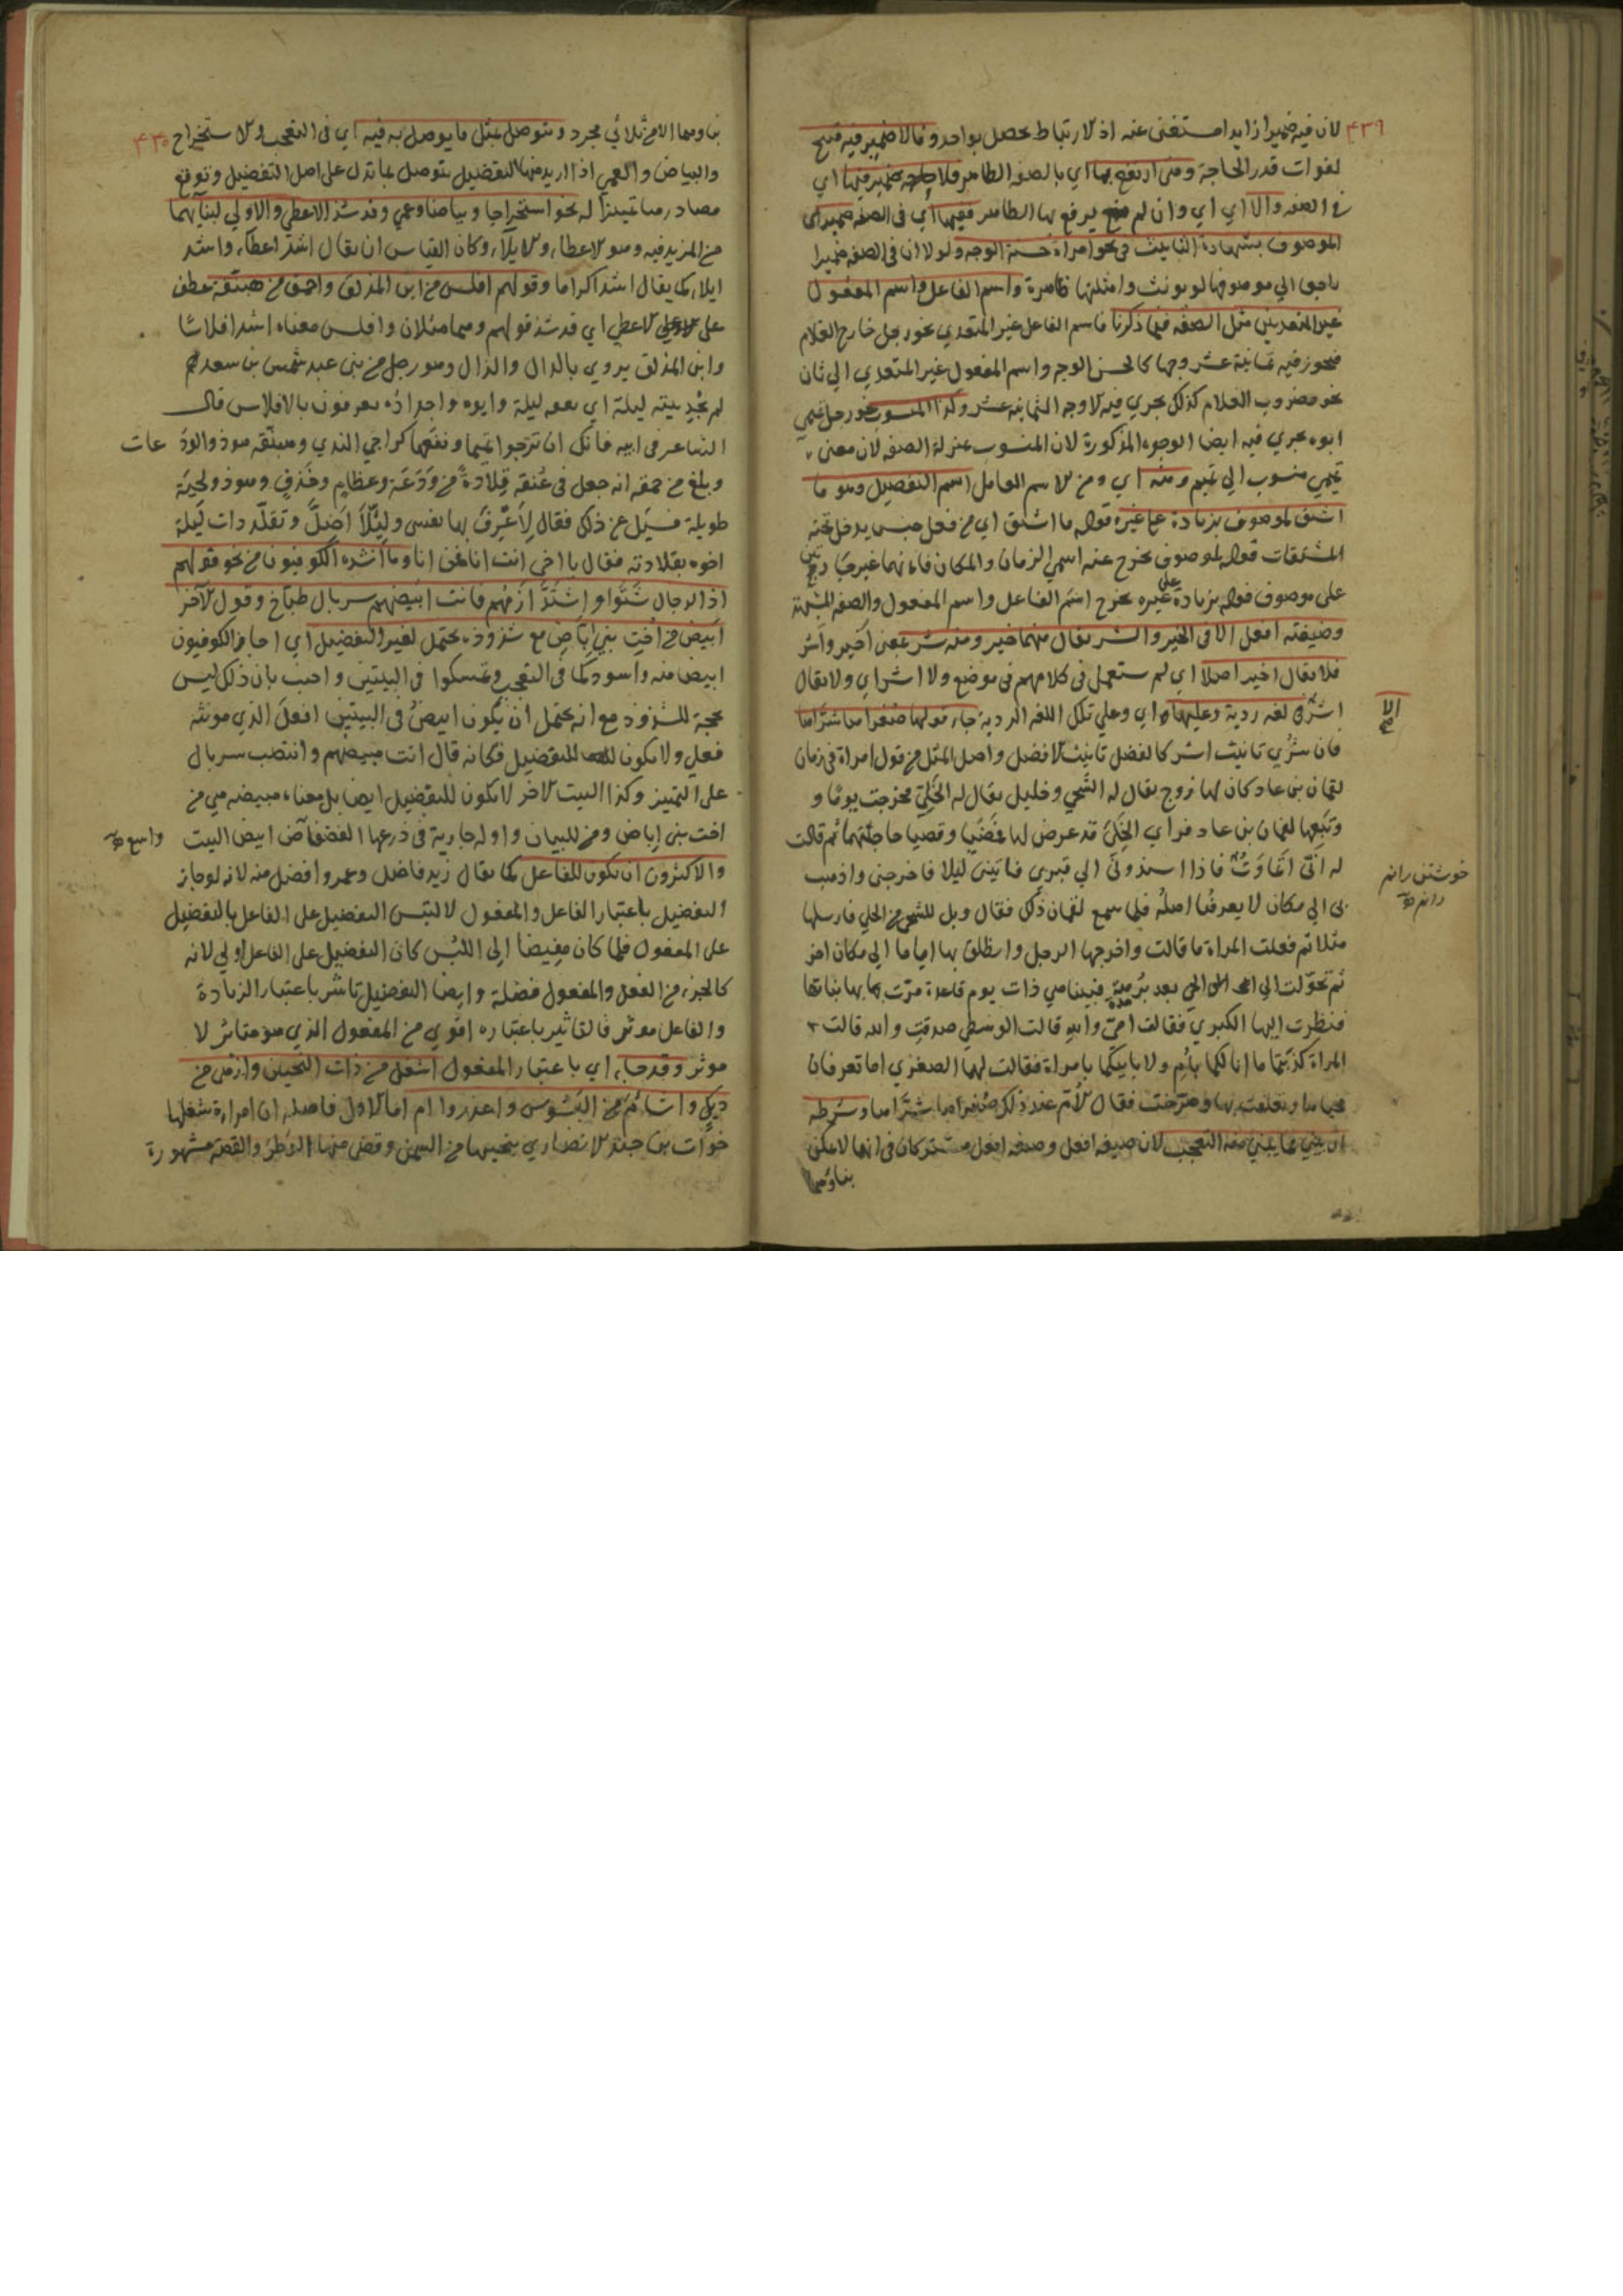 ٤٣٩
لان فيه ضميرا زايدا مستغنى عنه اذ الارتباط يحصل بواحد وما لا ضمير فيه قبيح
لفوات قدر الحاجة ومتى ارتفع بها اي بالصفه الظاهر فلا ضمير فيها اي
في الصفه والا اي اي وان لم يرفع بها الظاهر ففيها اي في الصفه ضمير
الموصوف بشهادة التانيث في نحو امراة حسنة الوجه ولولا ان في الصفه ضميرا
راجعا الي موصوفها لم يونث وامثلتها ظاهرة واسم الفاعل واسم المفعول
غير المتعديين مثل الصفه فيما ذكرنا فاسم الفاعل غير المتعدي نحو رجل خارج الغلام
فيجوز فيه ثمانية عشر وجها كالحسن الوجه واسم المفعول غير المتعدي الي ثان
نحو مضروب الغلام كذلك يجري فيه الاوجه الثمانية عشر وكذا المنسوب نحو رجل تميمي
ابوه يجري فيه ايضا الوجوه المذكورة لان المنسوب بمنزلة الصفه لان معنى
تميمي منسوب الي تميم ومنه اي ومن الاسم العامل اسم التفضيل وهو ما
اشتق لموصوف بزيادة على غيره قوله ما اشتق اي من فعل جنس يدخل تحته
المشتقات قوله لموصوف يخرج عنه اسمي الزمان والمكان فانهما غير
على موصوف قوله بزيادة على غيره يخرج اسم الفاعل واسم المفعول والصفه المشبهة
وصيغته افعل الا في الخير والشر يقال منهما خير ومنه شر بمعنى اخير واشر
فلا يقال اخير اصلا اي لم يستعمل في كلامهم في موضع ولا اشر اي ولا يقال
اشر الا لغه ردية وعليها اي وعلي تلك اللغه الردية جاء قولها صغراها شراها
فان شرّي تانيث اشر كالفضلى تانيث الافضل واصل المثل من قول امراة في زمان
لقمان بن عاد كان لها زوج يقال له الشجي وخليل يقال له الخلي فخرجت يوما و
وتبعها لقمان بن عاد فراي الخلي قد عرض لها فمضيا وقضيا حاجتهما ثم قالت
له اني اتماوت فاذا اسندوني الي قبري فاتيني ليلا فاخرجني واذهب
بي الي مكان لا يعرفنا اهله فلما سمع لقمان ذلك فقال ويل للشجي من الخلي فارسلها
مثلا ثم فعلت المراة ما قالت واخرجها الرجل وانطلق بها اياما الي مكان اخر
ثم تحولت الي الحي بعد برهة فبينا هي ذات يوم قاعدة مرت بها بناتها
فنظرت اليها الكبري فقالت امي والله قالت الوسطي صدقت والله قالت
المراة كذبتما ما انا لكما بام ولا لابيكما بامراة فقالت لهما الصغري اما تعرفان
محياها وتعلقت بها وصرخت فقال الام عند ذلك صغراها شراها وشرطه
ان يبني مما يبني منه التعجب لان صيغه افعل وصفه افعل مشتركان في انها لا يمكن
بناوهما
خوشتن رانم
٤٣٠
بناوهما الا من ثلاثي مجرد ويتوصل بمثل ما يوصل به فيه اي في التعجب والاستخراج
والبياض والعمى اذا اريد منها التفضيل يتوصل بما تدل على اصل التفضيل وتوقع
مصادرها تمييزا له نحو استخراجا وبياضا وعمي وقد شذ الاعطى والاولى لبنائهما
من المزيد فيه وهو الاعطاء والايلاء وكان القياس ان يقال اشد اعطاء واشد
ايلاء كما يقال اشد اكراما وقولهم افلس من ابن المذلق واحمق من هبنقة عطف
على الاعطي اي قد شذ قولهم وهما مثلان وافلس معناه اشد افلاسا
وابن المذلق يروي بالدال والذال وهو رجل من بني عبد شمس بن سعد
لم يجد بيته ليلة اي بعه ليلة وابوه واجداده يعرفون بالافلاس قال
الشاعر في ابيه فانك ان ترجوا تميما ونفعها كراجي الندي وهبنقه هو ذو الودعات
وبلغ من حمقه انه جعل في عنقه قلادة من ودعة وعظام وخزف وهو ذو لحية
طويلة فسيل عن ذلك فقال لاعرف بها نفسي وليلا اضل وتقلد ذات ليلة
اخوه بقلادته فقال يا اخي انت انا فمن انا وما انشده الكوفيون من نحو قولهم
اذا الرجال شتوا واشتد ازمهم فانت ابيضهم سربال طباخ وقول الآخر
ابيض من اخت بني اباض مع شذوذه يحتمل لغير التفضيل اي اجاز الكوفيون
ابيض منه واسود كما في التعجب وتمسكوا في البيتين واجيب بان ذلك ليس
بحجة للشذوذ مع انه يحتمل ان يكون ابيض في البيتين افعل الذي مونثه
فعلي ولا يكون للتفضيل فكانه قال انت مبيضهم وانتصب سربال
على التمييز وكذا البيت الاخر لا يكون للتفضيل ايضا بل معناه مبيضه هي من
اخت بني اباض ومن للبيان واوله جارية في درعها الفضفاض ابيض البيت
واسع
والاكثرون ان يكون للفاعل كما يقال زيد فاضل وعمرو افضل منه لانه لو جاز
التفضيل باعتبار الفاعل والمفعول لالتبس التفضيل على الفاعل بالتفضيل
على المفعول فلما كان مفيضا الى اللبس كان التفضيل على الفاعل اولي لانه
كالجزء من الفعل والمفعول فضلة وايضا التفضيل تاثير باعتبار الزيادة
والفاعل موثر فالتاثير باعتباره اقوي من المفعول الذي هو متاثر لا
موثر وقد جاء اي باعتبار المفعول اشغل من ذات النحيين وازهى من
ديك واشأم من البسوس واعذر اما الاول فاصله ان امراة شغلها
خوات بن جبير الانصاري بنحييها من السمن وقضى منها الوطر والقصة مشهورة